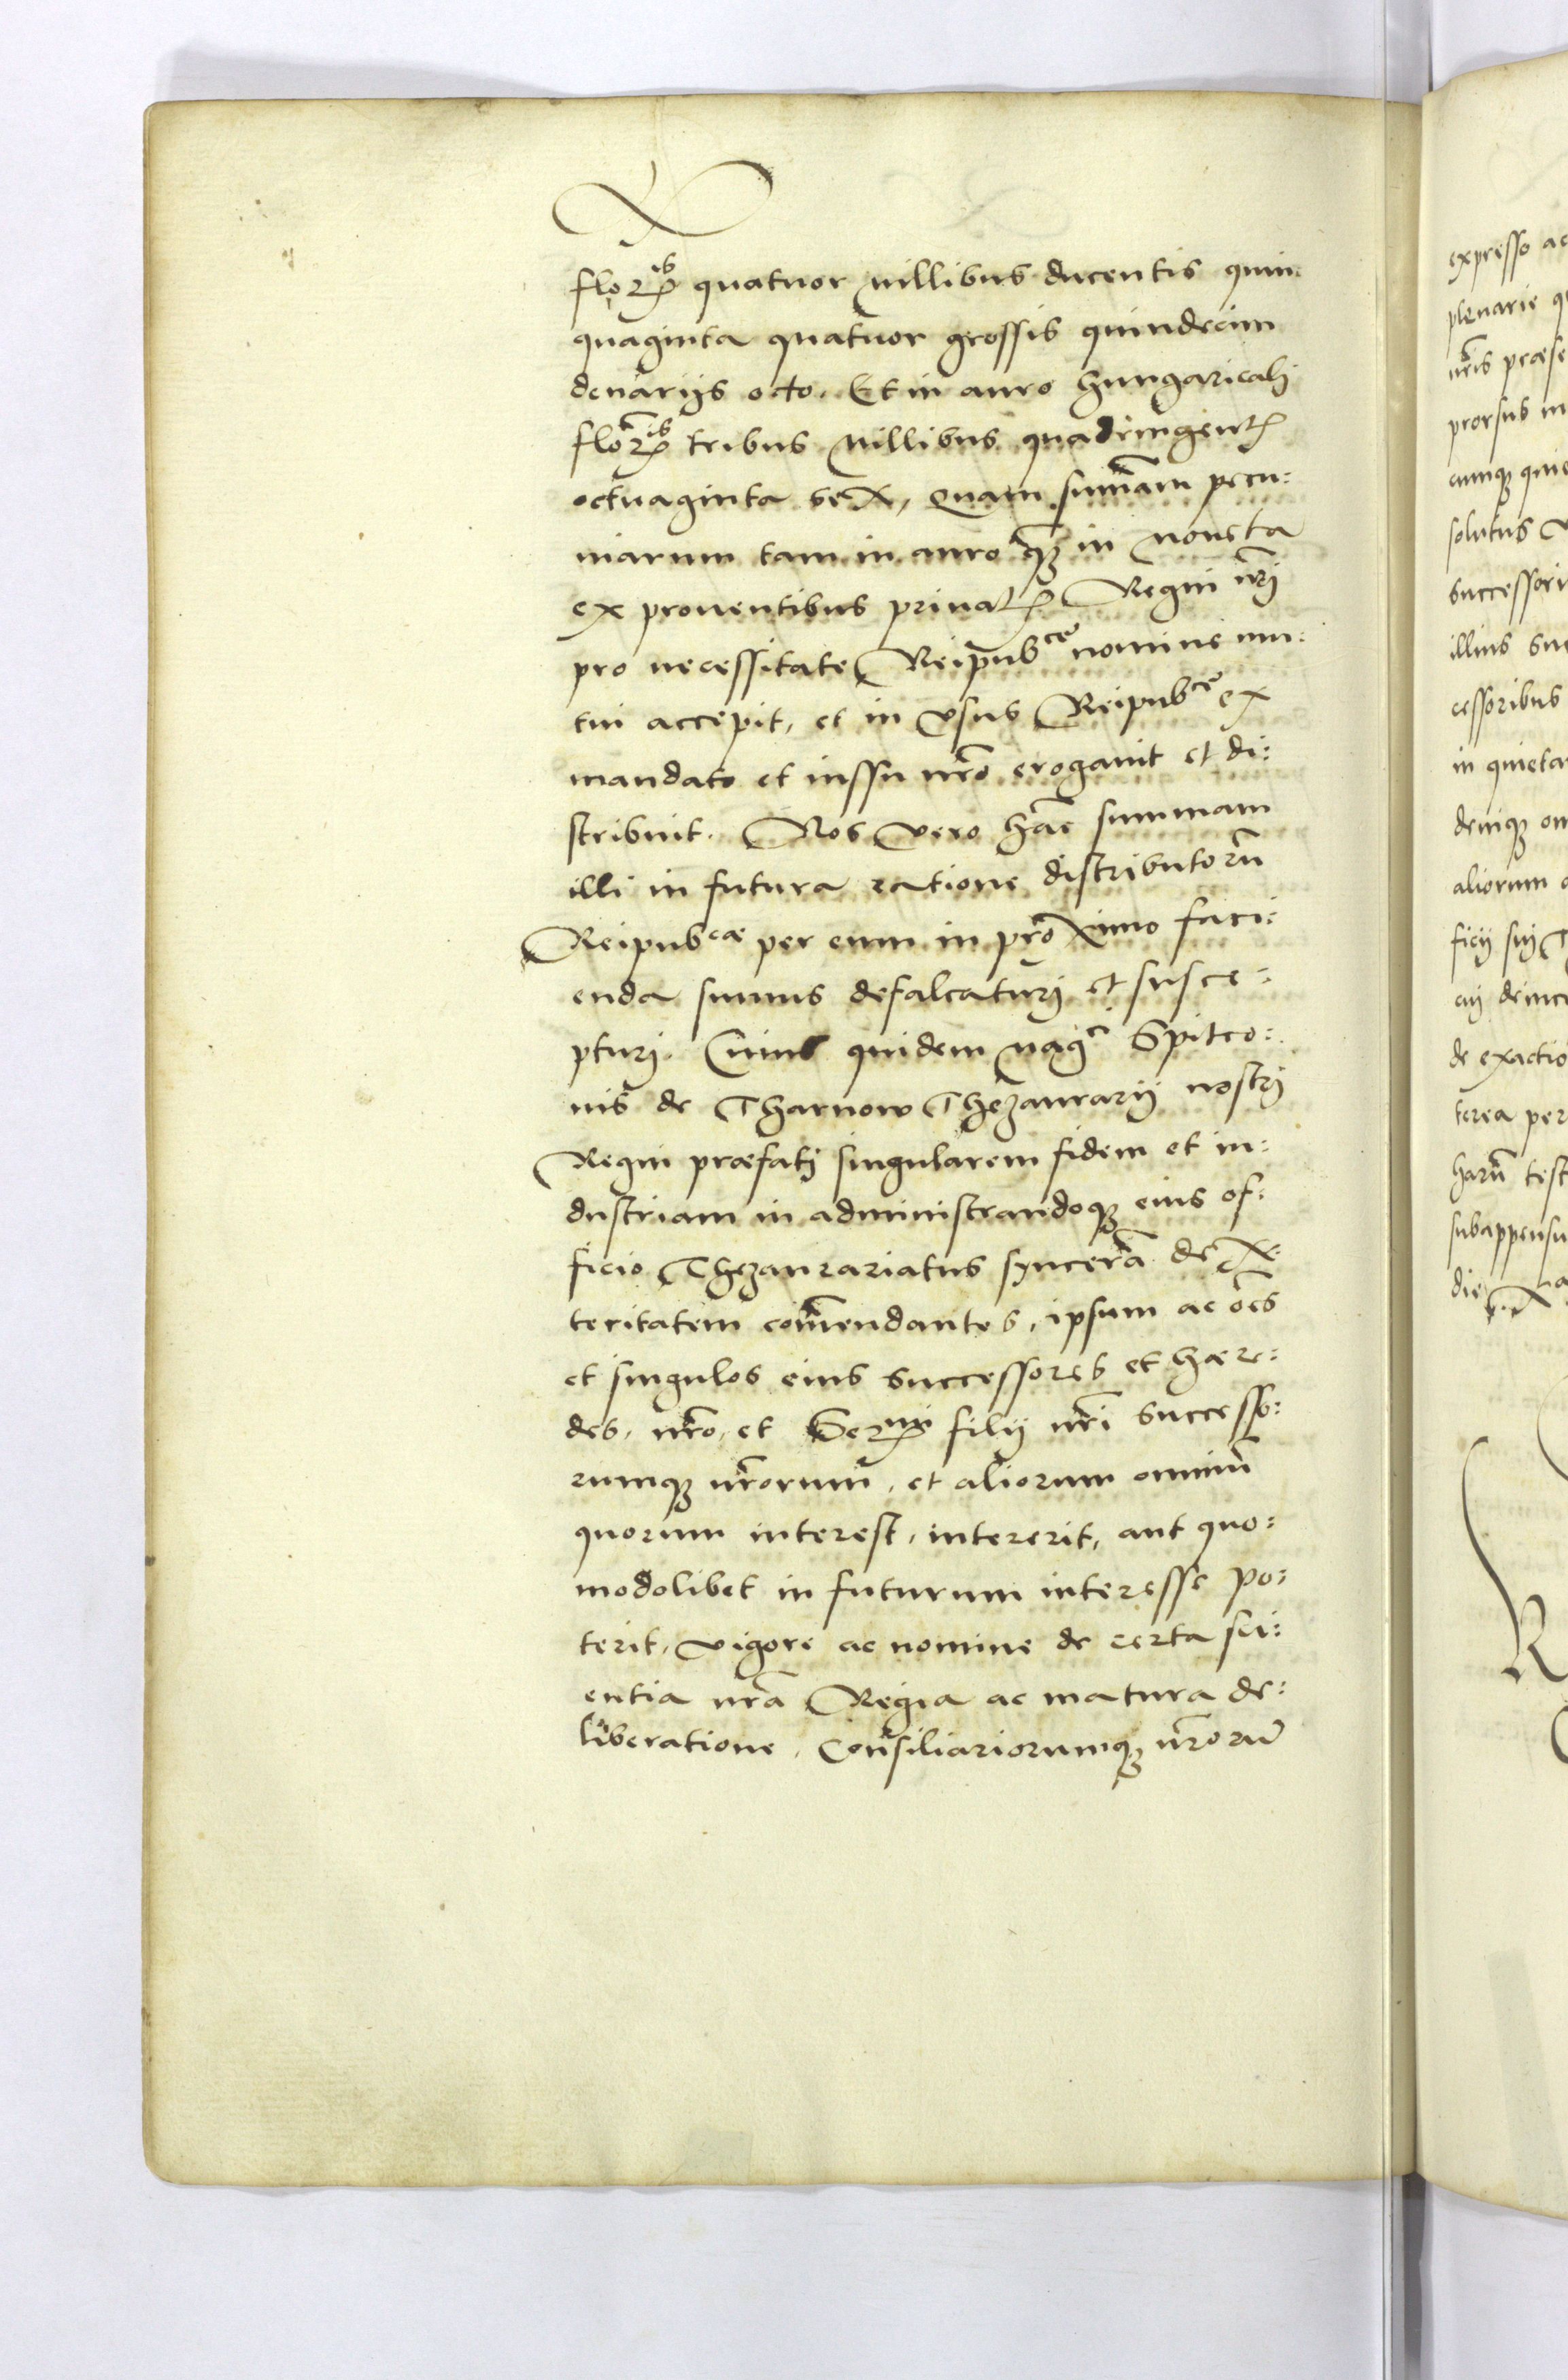 florꝭ quatuor millibus ducentis quin
quaginta quatuor grossis quindecim
denarijs octo. Et in auro hungaricalj
florꝭ tribus millibus quadringentꝭ
octuaginta sex, Quam sum̄am pecu:
niarum tam in auro qꝫ in moneta
ex prouentibus priuatꝭ Regni nr̄j
pro necessitate Reipubce nomine mu:
tui accepit, et in vsus Reipubce ex
mandato et iussu nr̄o erogauit et di:
stribuit. Nos vero hāc summam
illi in futura ratione distributorū
Reipubcae per eum in proximo faci:
enda sumus defalcaturj et susce:
pturj. Cuius quidem Mag̃ci Spitco:
nis de Tharnow Thezaurarij nostrj
Regni præfatj singularem fidem et in:
dustriam in administrandoqꝫ eius of:
ficio Thezaurariatus syncerā dex
teritatem com̄endantes, ipsum ac oēs
et singulos eius successores et hære:
des, nr̄o, et Sermi filij nr̄i successo:
rumqꝫ nr̄orum, et aliorum omniū
quorum interest, intererit, aut quo:
modolibet in futurum interesse po:
terit, vigore ac nomine de certa sci:
entia nr̄a Regia ac matura de:
liberatione, Consiliariorumqꝫ nr̄orū
expresso ac
plenarie q
nr̄is præse
prorsus in
cumqꝫ quie
solutus
successori
illius suc
cessoribus
in quieta
deniqꝫ om
aliorum
ficij sui
cuj deinc
de exactio
terea per
harū test
subappensu
die